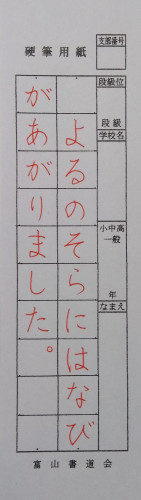 硬筆用紙
支部番号
段級位
段級
学校名
小中高
一般
年
なまえ
よるのそらにはなび
があがりました。
富山書道会